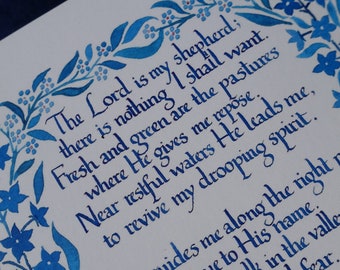 The Lord is my shepherd;
there is nothing I shall want.
Fresh and green are the pastures
where He gives me repose.
Near restful waters He leads me,
to revive my drooping spirit.
guides me along the right
to His name.
in the valley
fear.